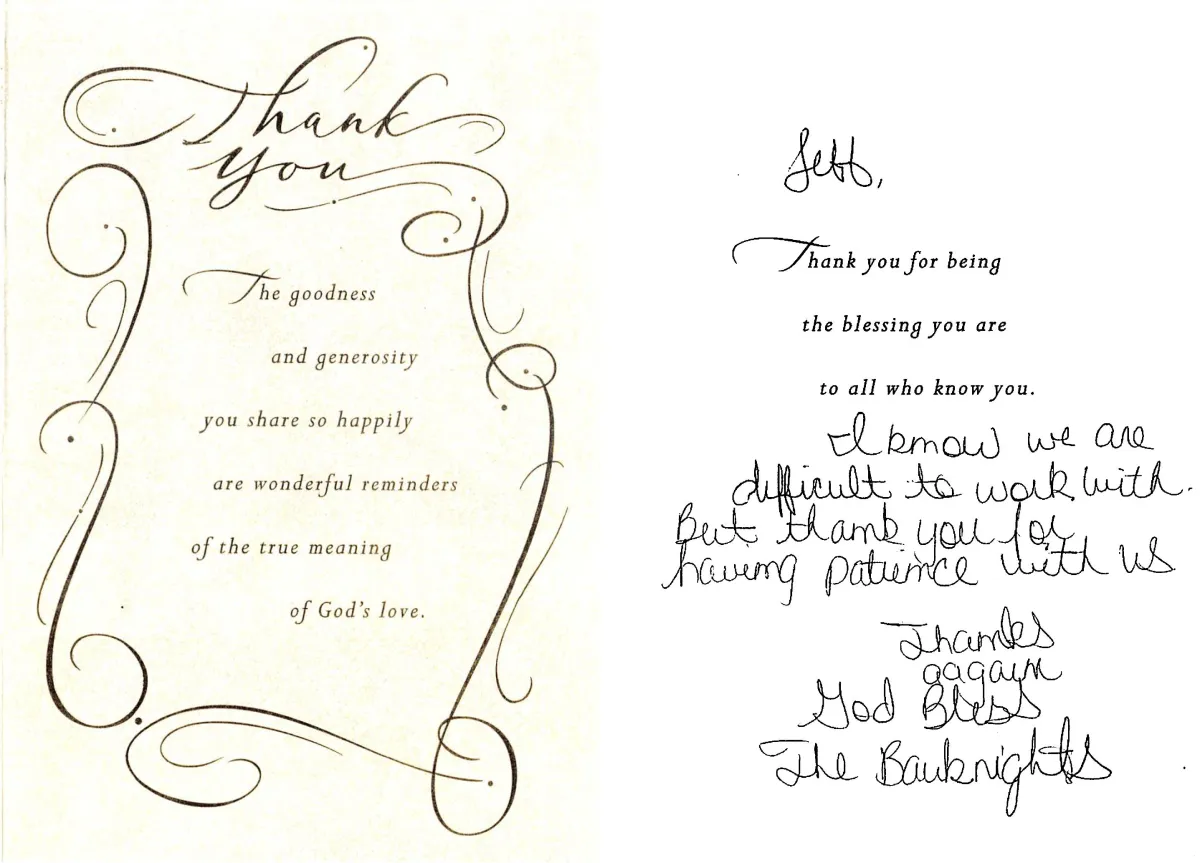 Thank
you
The goodness
and generosity
you share so happily
are wonderful reminders
of the true meaning
of God's love.
Jeff,
Thank you for being
the blessing you are
to all who know you.
I know we are
difficult to work with.
But thank you for
having patience with us
Thanks
aagain
God Bless
The Bauknights